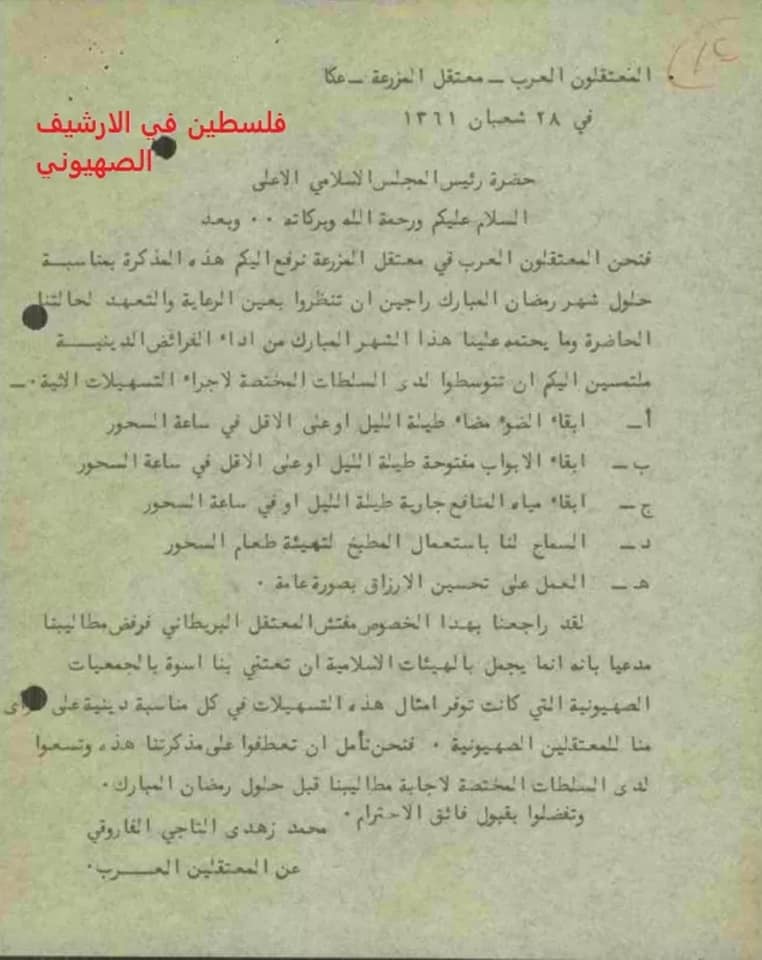 المعتقلون العرب – معتقل المزرعة – عكا
في ٢٨ شعبان ١٣٦١
فلسطين في الارشيف
الصهيوني
حضرة رئيس المجلس الاسلامي الاعلى
السلام عليكم ورحمة الله وبركاته ٠٠ وبعد
فنحن المعتقلون العرب في معتقل المزرعة نرفع اليكم هذه المذكرة بمناسبة
حلول شهر رمضان المبارك راجين ان تنظروا بعين الرعاية والتعهد لحالتنا
الحاضرة وما يحتمه علينا هذا الشهر المبارك من اداء الفرائض الدينية
ملتمسين اليكم ان تتوسطوا لدى السلطات المختصة لاجراء التسهيلات الاتية ٠–
أ– ابقاء الضوء مضاء طيلة الليل او على الاقل في ساعة السحور
ب– ابقاء الابواب مفتوحة طيلة الليل او على الاقل في ساعة السحور
ج– ابقاء مياه المنافع جارية طيلة الليل او في ساعة السحور
د– السماح لنا باستعمال المطبخ لتهيئة طعام السحور
هـ– العمل على تحسين الارزاق بصورة عامة ٠
لقد راجعنا بهذا الخصوص مفتش المعتقل البريطاني فرفض مطاليبنا
مدعيا بانه انما يجمل بالهيئات الاسلامية ان تعتني بنا اسوة بالجمعيات
الصهيونية التي كانت توفر امثال هذه التسهيلات في كل مناسبة دينية على
منا للمعتقلين الصهيونية ٠ فنحن نأمل ان تعطفوا على مذكرتنا هذه وتسعوا
لدى السلطات المختصة لاجابة مطاليبنا قبل حلول رمضان المبارك ٠
وتفضلوا بقبول فائق الاحترام ٠
محمد زهدى التاجي الفاروقي
عن المعتقلين العرب ٠